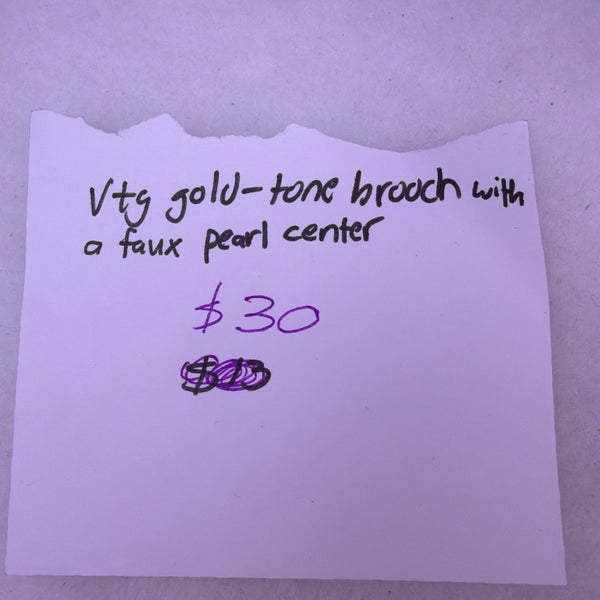 Vtg gold-tone brooch with
a faux pearl center
$30
$13